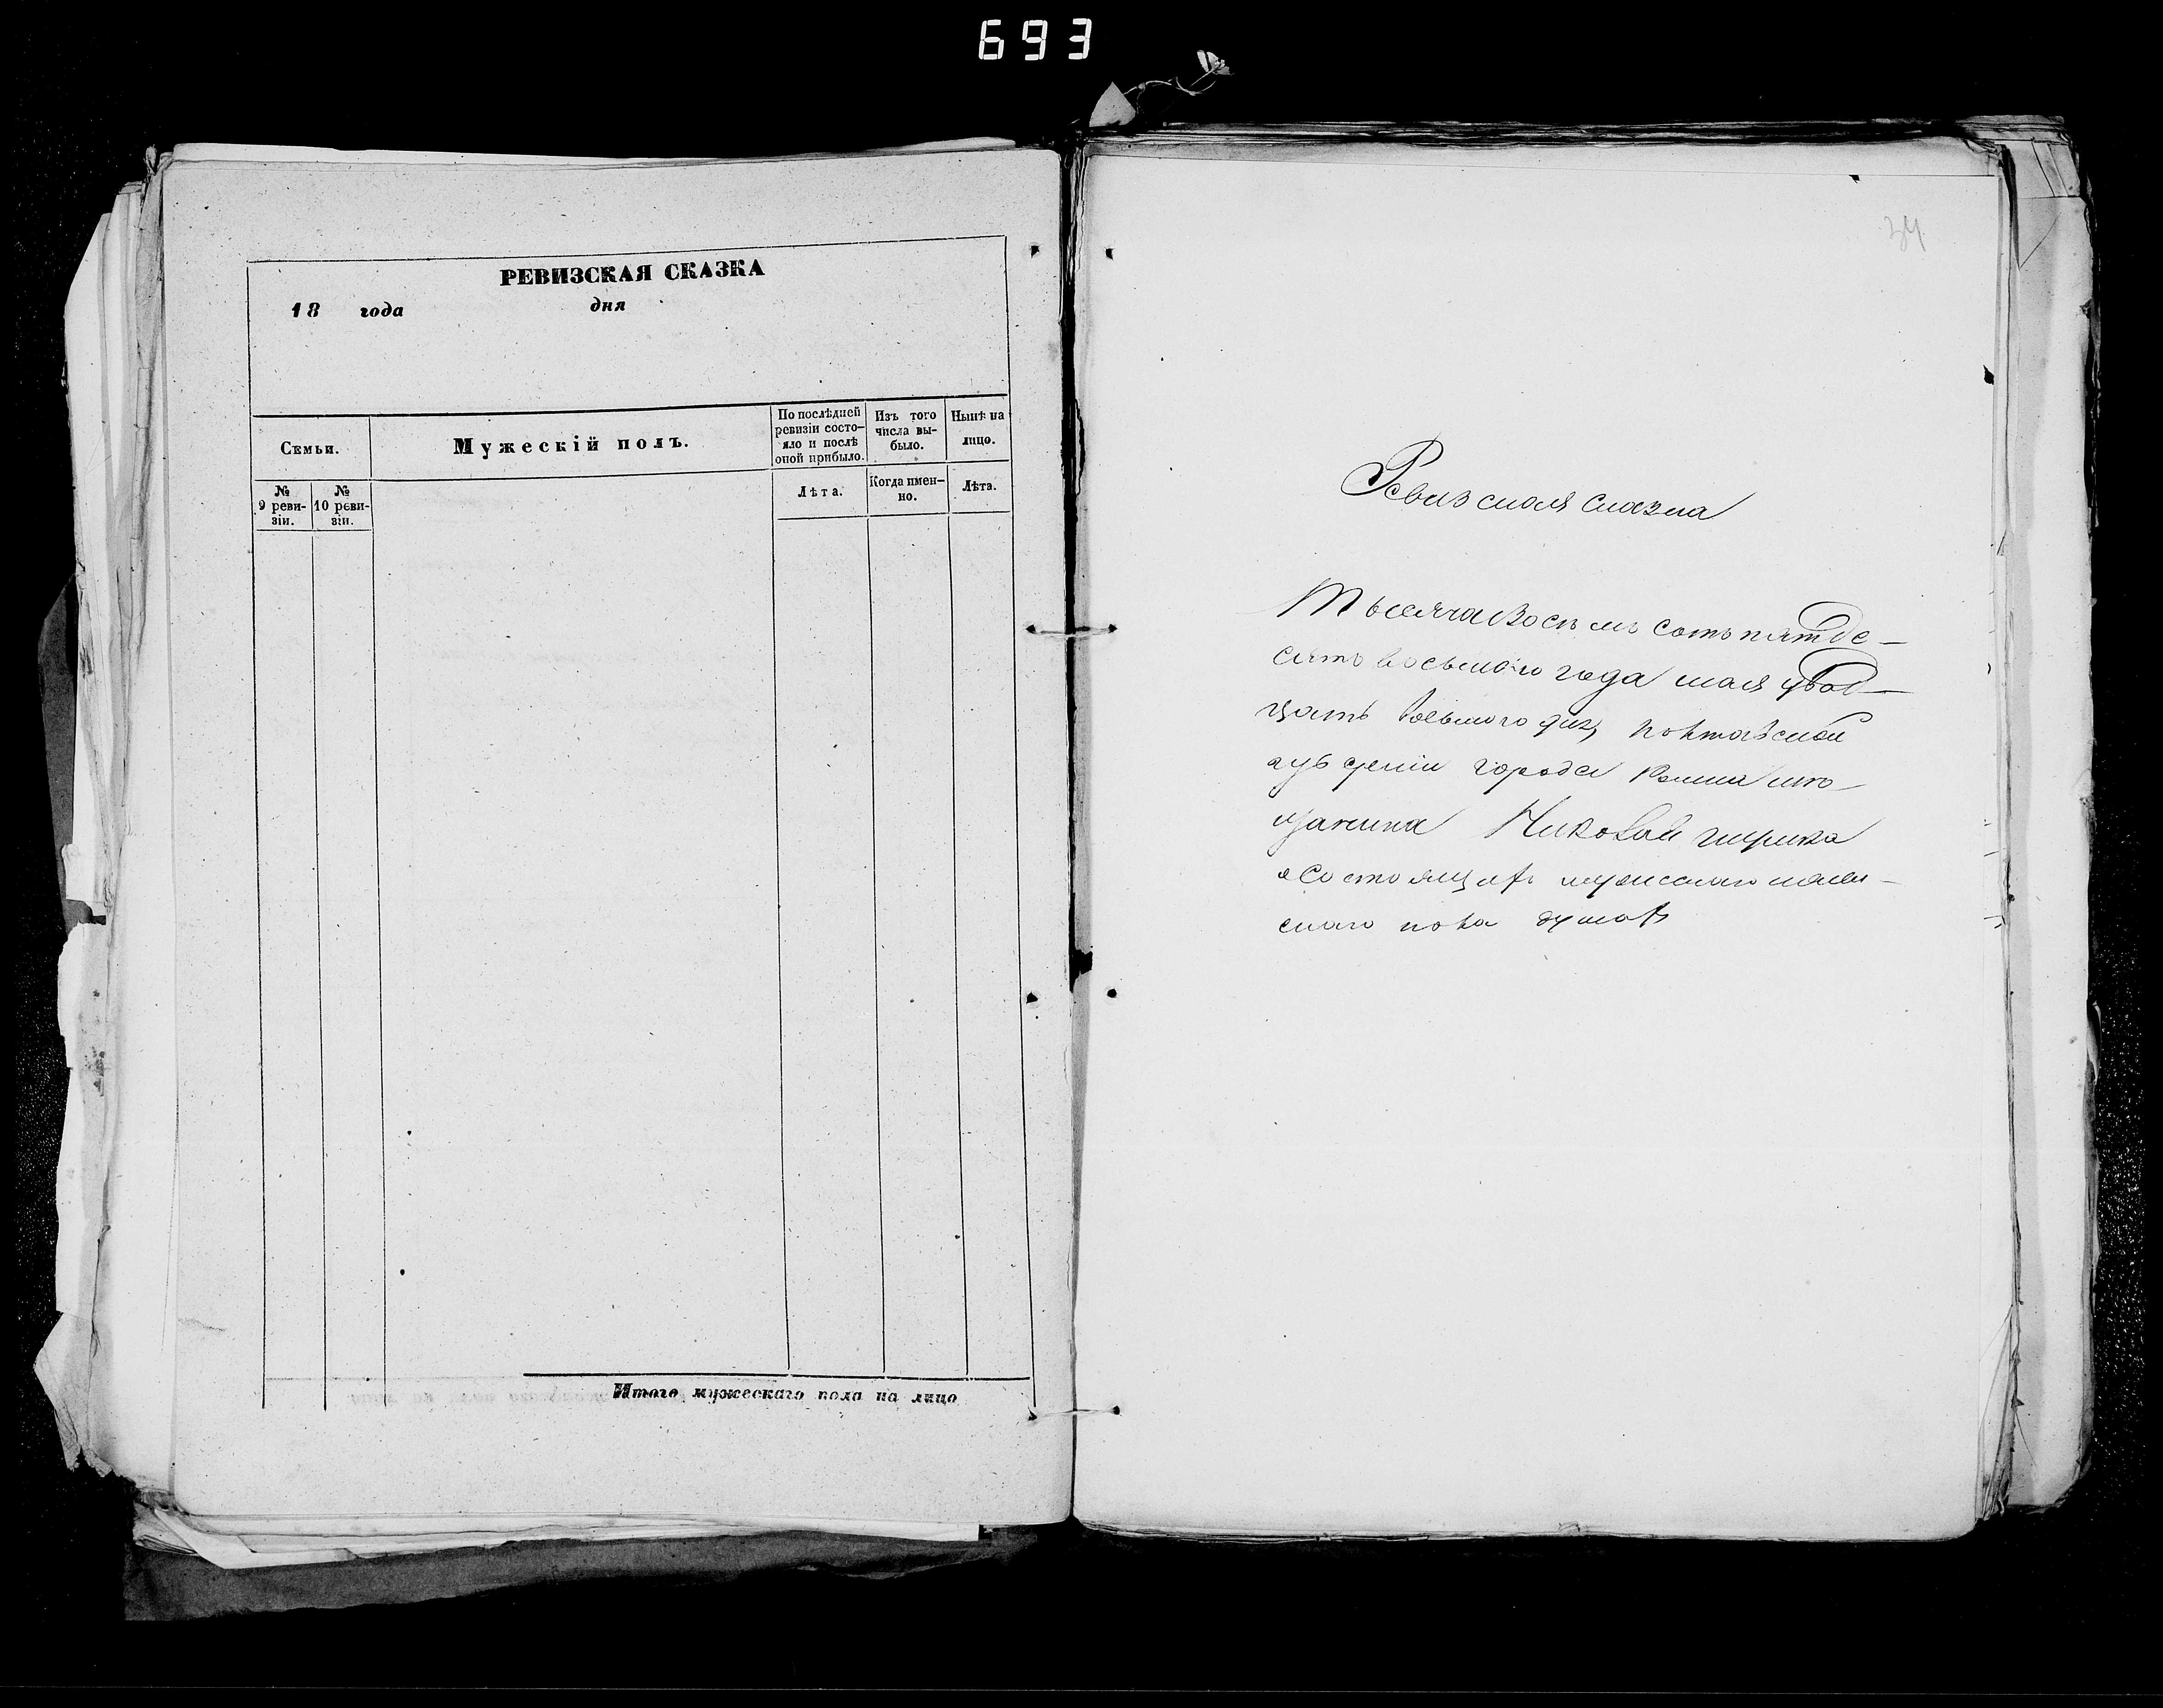 693
РЕВИЗСКАЯ СКАЗКА
18 года дня
Семьи.
Мужескій полъ.
По послѣдней ревизіи состо-
яло и послѣ
оной прибыло.
Изъ того
числа вы-
было.
Нынѣ на
лицо.
№
9 реви-
зіи.
№
10 реви-
зіи.
Лѣта.
Когда имен-
но.
Лѣта.
Итого мужескаго пола на лицо
34
Ревизская сказка
Тысяча восемь сотъ пятде-
сятъ восьмого года мая двад-
цать восьмого дня, полтавской
губерніи города
Николай
состоящаго мужескаго
скаго пола душахъ